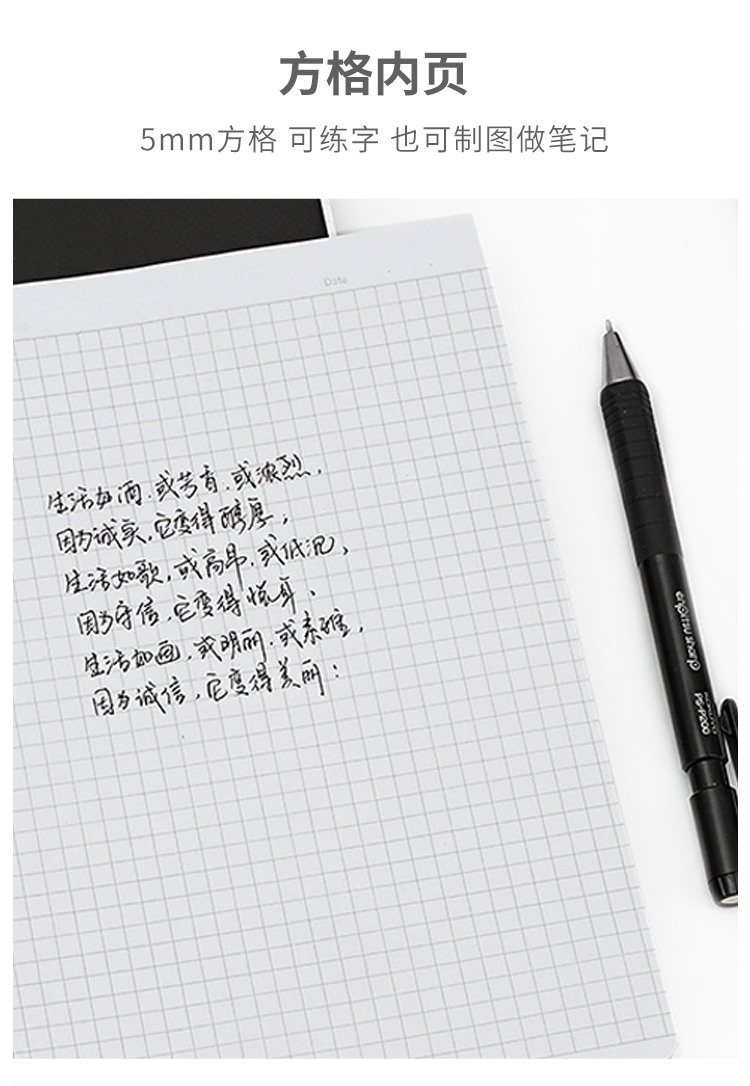 方格内页
5mm方格 可练字 也可制图做笔记
Date
生活如酒,或芳香,或浓烈,
因为诚实,它变得醇厚;
生活如歌,或高昂,或低沉,
因为守信,它变得悦耳;
生活如画,或明丽,或素雅,
因为诚信,它变得美丽;
enpitsu sharp
KOKUYO
PS-P200